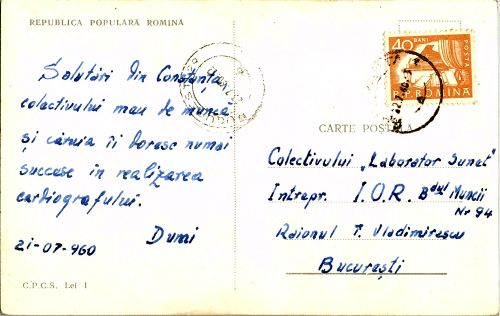 REPUBLICA POPULARĂ ROMÎNĂ
Salutări din Constanța
colectivului meu de muncă
și căruia îi doresc numai
succese în realizarea
cardiografului.
Dumi
21-07-960
C.P.C.S. Lei 1
40 BANI
POSTA
R.P.ROMINA
CARTE POȘTALĂ
Colectivului „Laborator Sunet"
Intrepr. I.O.R. Bdul Muncii
Nr 94
Raionul T. Vladimirescu
București